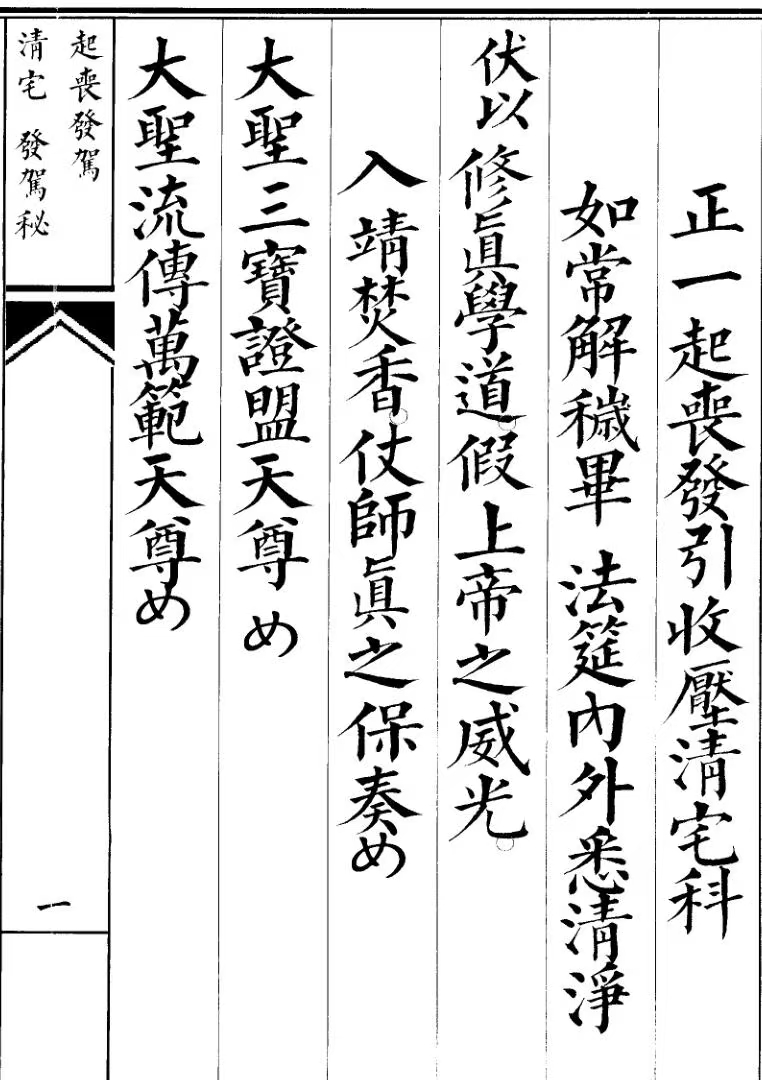 正一起喪發引收壓清宅科
如常解穢畢 法筵內外悉清淨
伏以修眞學道。假上帝之威光。
入靖焚香。仗師眞之保奏め
大聖三寶證盟天尊め
大聖流傳萬範天尊め
起喪發駕
清宅 發駕秘
一